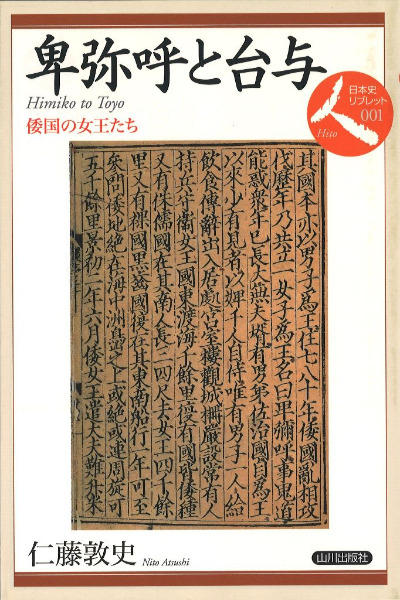 卑弥呼と台与
Himiko to Toyo
倭国の女王たち
日本史
リブレット
001
人
Hito
其國本亦以男子爲王住七八十年倭國亂相攻
伐歷年乃共立一女子爲王名曰卑彌呼事鬼道
能惑衆年已長大無夫壻有男弟佐治國自爲王
以來少有見者以婢千人自侍唯有男子一人給
飲食傳辭出入居處宮室樓觀城柵嚴設常有人
持兵守衛女王國東渡海千餘里復有國皆倭種
又有侏儒國在其南人長三四尺去女王四千餘
里又有裸國黑齒國復在其東南船行一年可至
參問倭地絶在海中洲㠀之上或絶或連周旋可
五千餘里景初二年六月倭女王遣大夫難升米
仁藤敦史
Nito Atsushi
山川出版社